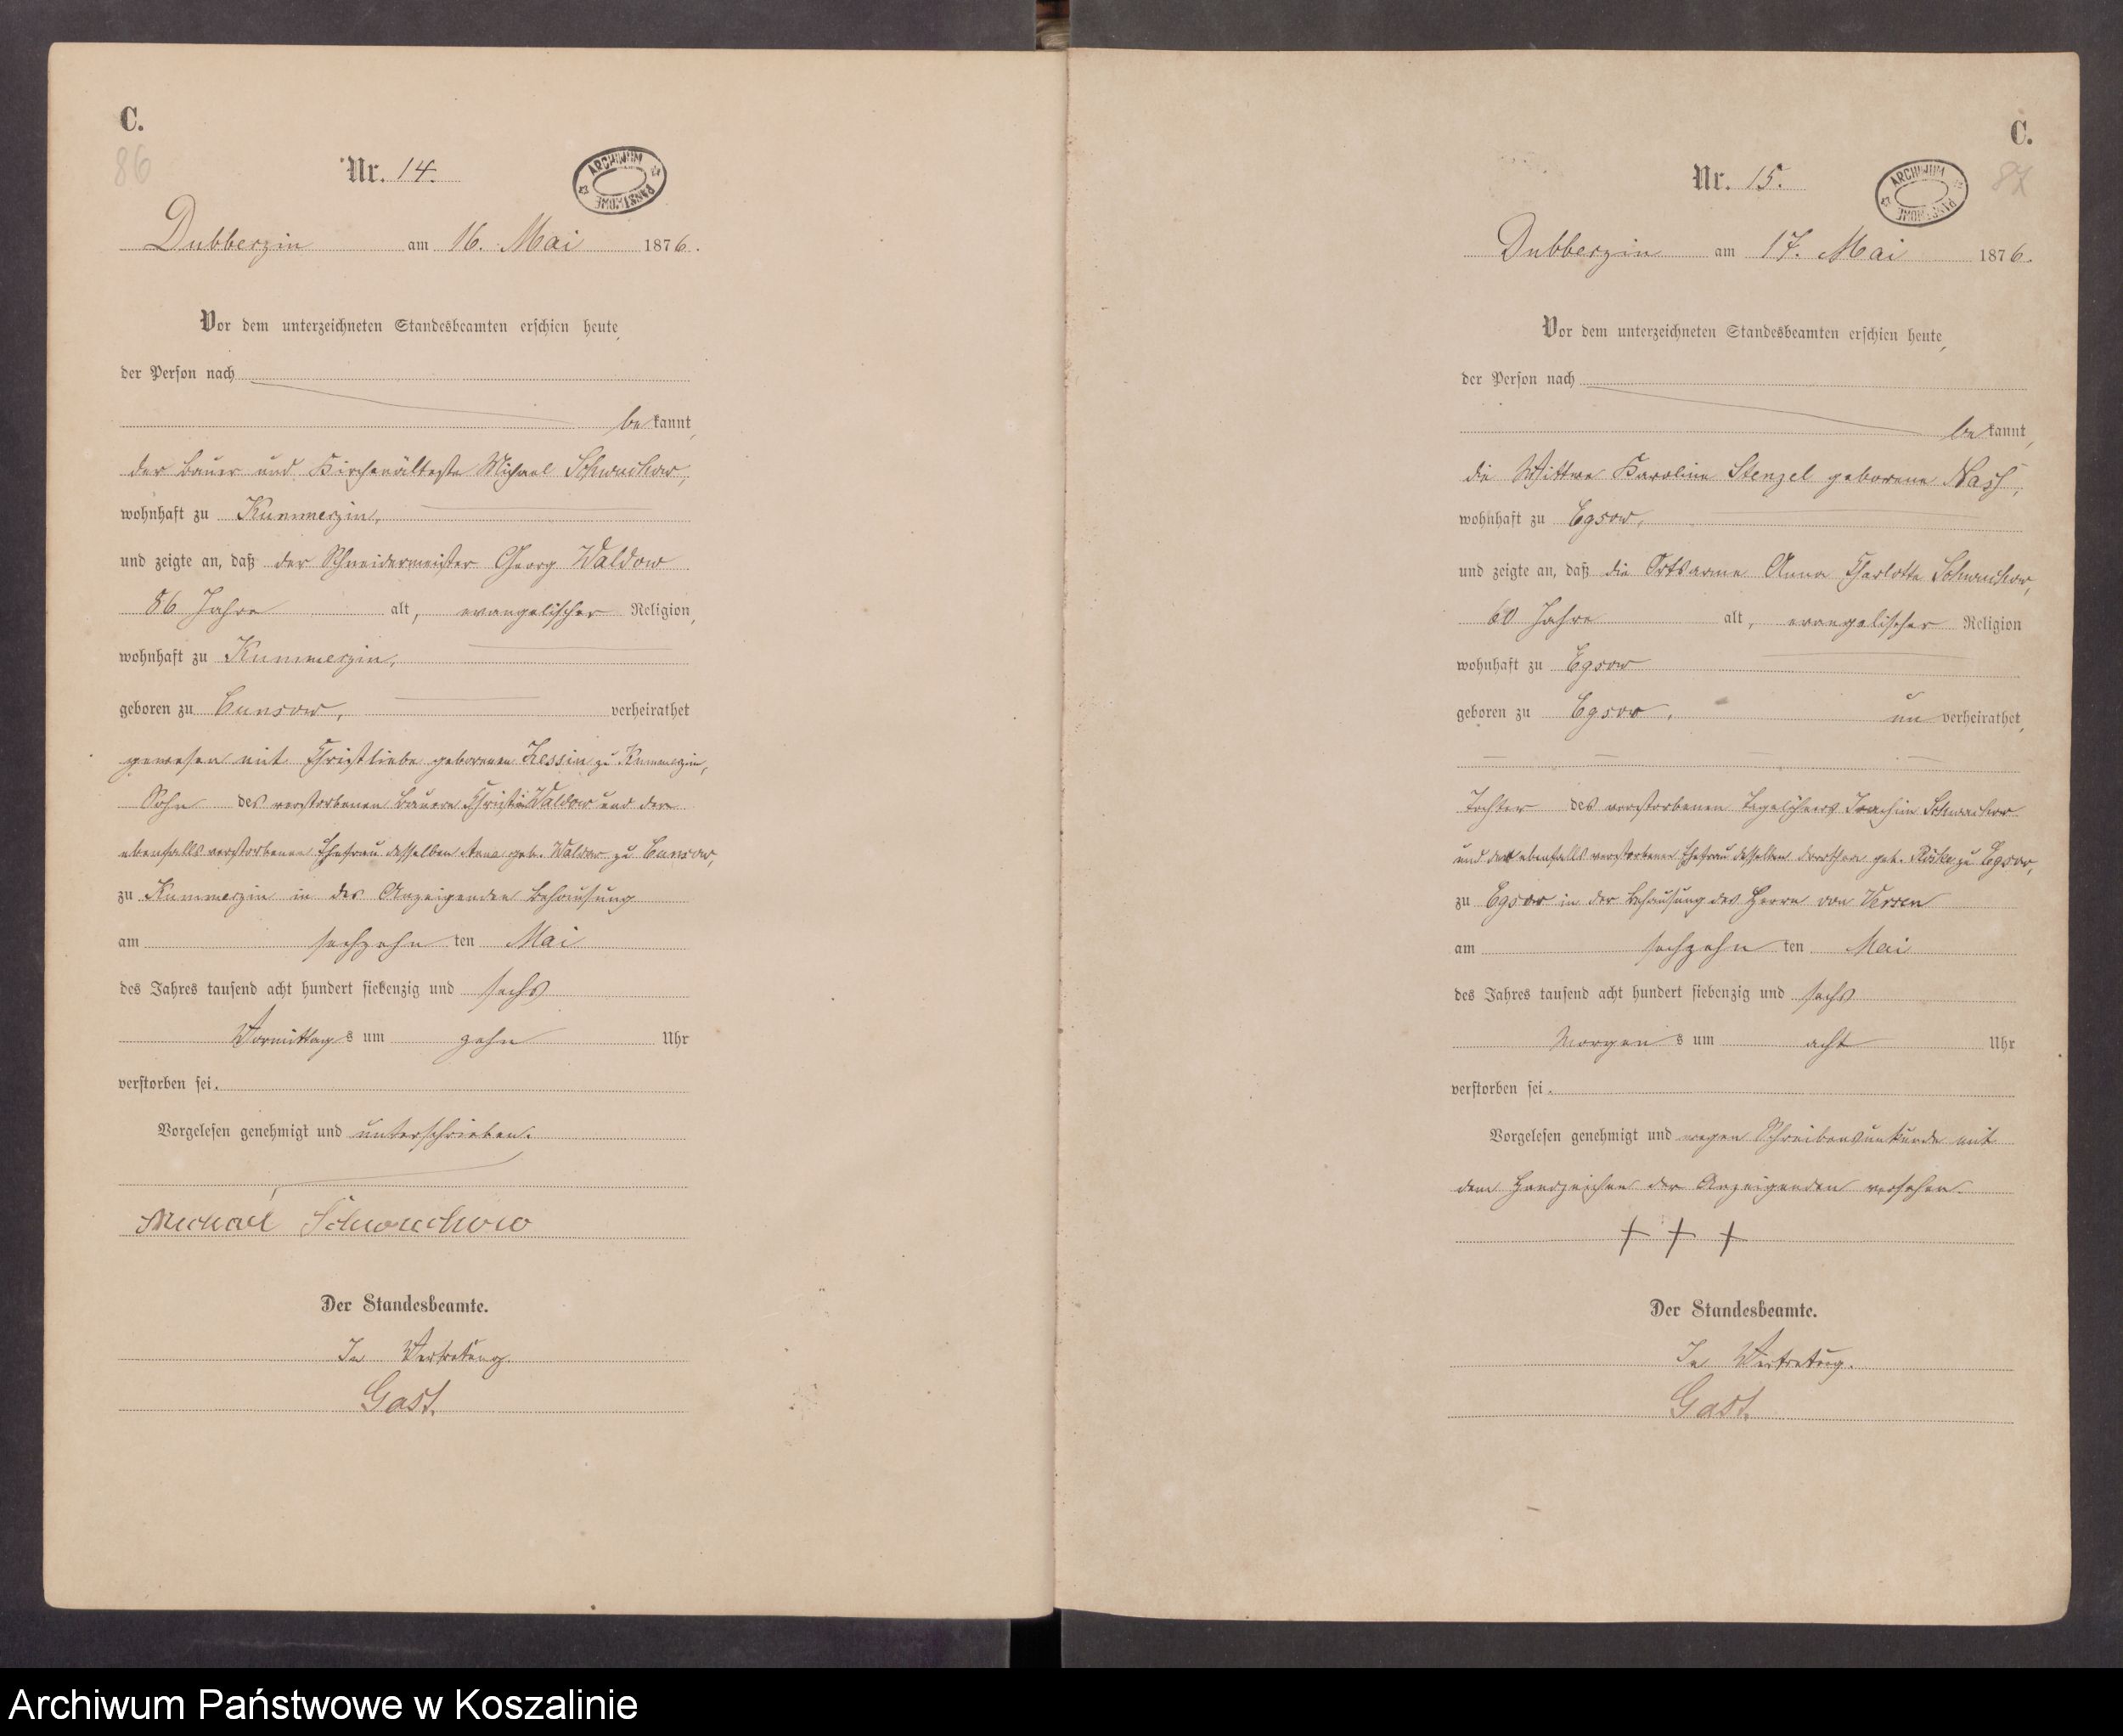 C.
86
Nr. 14.
ARCHIWUM PAŃSTWOWE
Dubberzin am 16. Mai 1876.
Vor dem unterzeichneten Standesbeamten erschien heute,
der Person nach
bekannt,
der Bauer und Kirchenälteste Michael Schwuchow,
wohnhaft zu Kummerzin,
und zeigte an, daß der Schneidermeister Georg Waldow
86 Jahre alt, evangelischer Religion,
wohnhaft zu Kummerzin,
geboren zu Cunsow, verheirathet
gewesen mit Christliebe geborenen Zessin zu Kummerzin,
Sohn des verstorbenen Bauern Christian Waldow und der
ebenfalls verstorbenen Ehefrau desselben Anna geb. Waldow zu Cunsow,
zu Kummerzin in des Anzeigenden Behausung
am sechzehnten Mai
des Jahres tausend acht hundert siebenzig und sechs
Vormittags um zehn Uhr
verstorben sei.
Vorgelesen genehmigt und unterschrieben.
Michael Schwuchow
Der Standesbeamte.
In Vertretung.
Gast.
C.
87
Nr. 15.
ARCHIWUM PAŃSTWOWE
Dubberzin am 17. Mai 1876.
Vor dem unterzeichneten Standesbeamten erschien heute,
der Person nach
bekannt,
die Wittwe Karoline Stenzel geborene Nass,
wohnhaft zu Egsow,
und zeigte an, daß die Ortsarme Anna Charlotte Schwuchow,
60 Jahre alt, evangelischer Religion
wohnhaft zu Egsow
geboren zu Egsow, unverheirathet,
Tochter des verstorbenen Tagelöhners Joachim Schwuchow
und der ebenfalls verstorbenen Ehefrau desselben Dorothea geb. Röske zu Egsow,
zu Egsow in der Behausung des Herrn von Versen
am sechzehnten Mai
des Jahres tausend acht hundert siebenzig und sechs
Morgens um acht Uhr
verstorben sei.
Vorgelesen genehmigt und wegen Schreibensunkunde mit
dem Handzeichen der Anzeigenden versehen.
+ + +
Der Standesbeamte.
In Vertretung.
Gast.
Archiwum Państwowe w Koszalinie